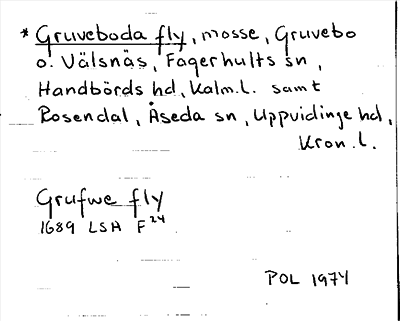 * Gruveboda fly, mosse, Gruvebo
o. Välsnäs, Fagerhults sn,
Handbörds hd, Kalm.l. samt
Rosendal, Åseda sn, Uppvidinge hd,
Kron.l.
Grufwe fly
1689 LSA F24
POL 1974